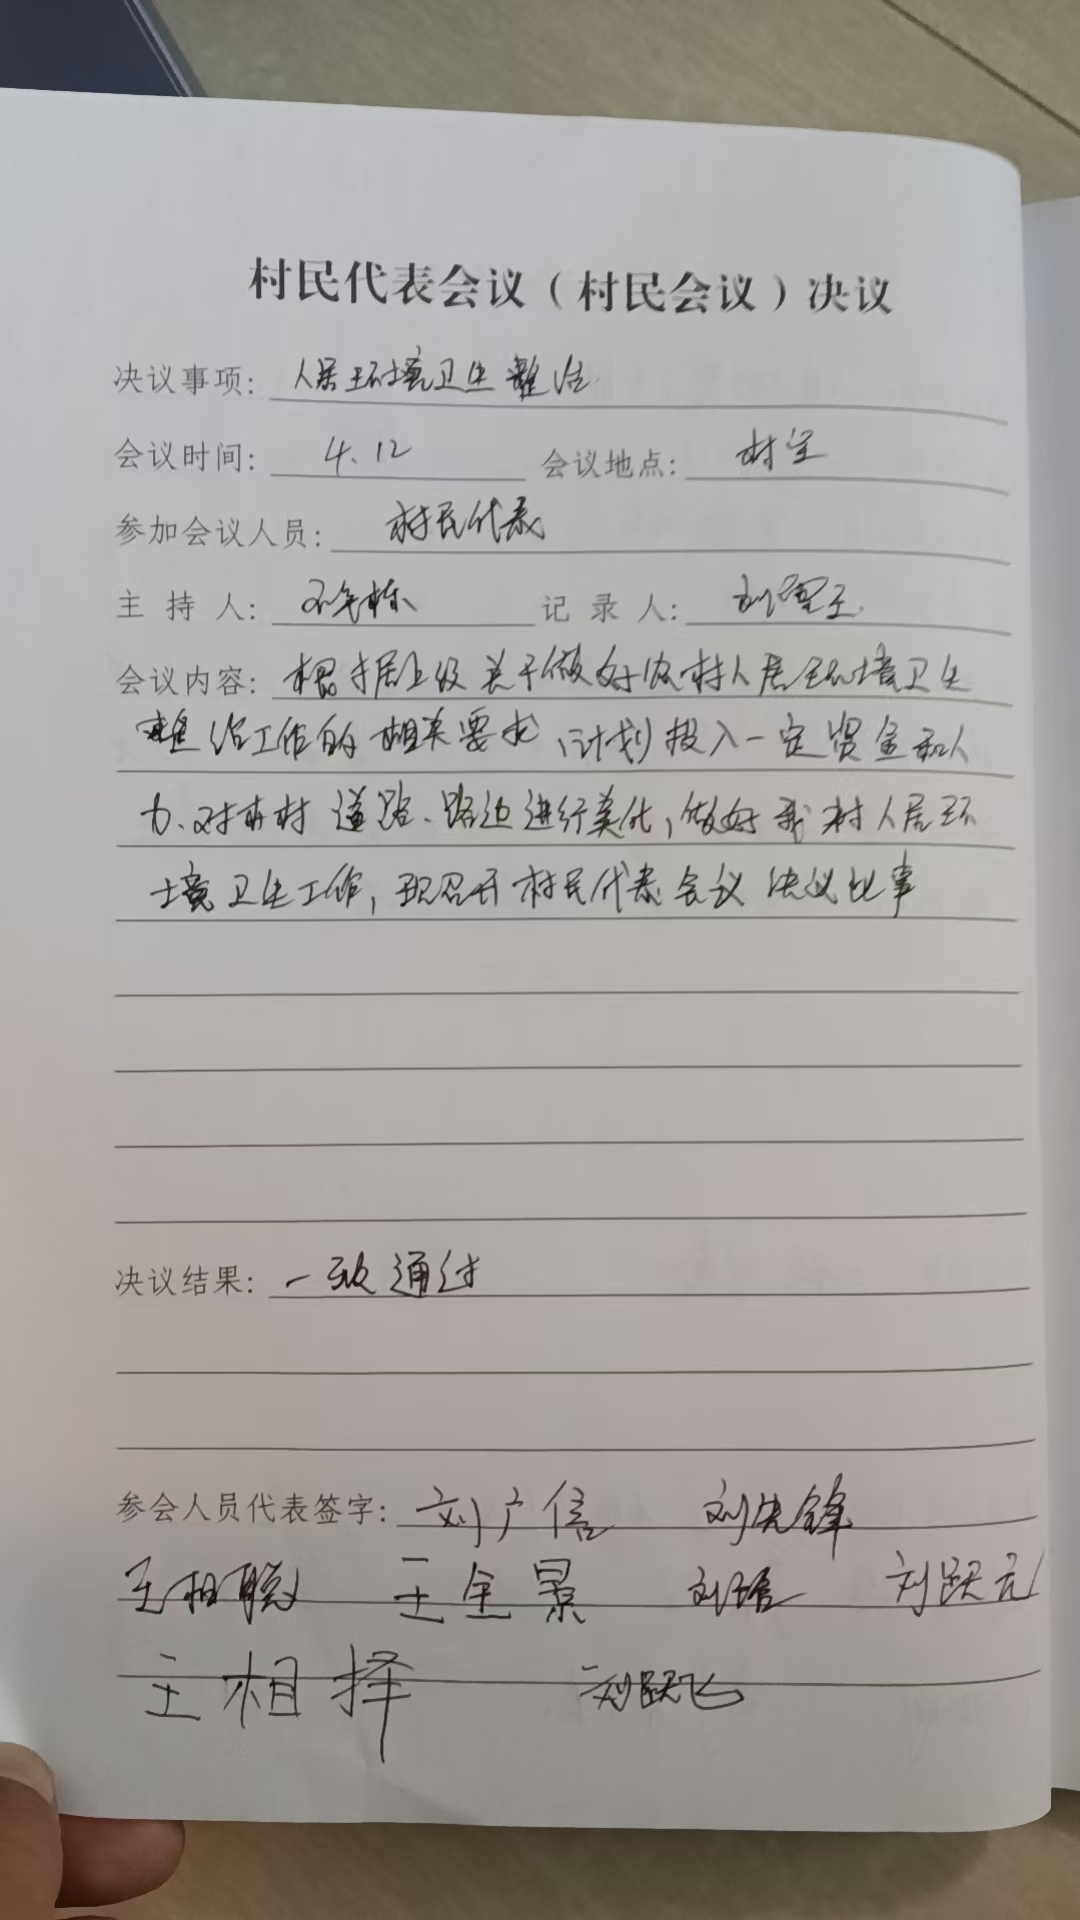 村民代表会议（村民会议）决议
决议事项：人居环境卫生整治
会议时间：4.12 会议地点：村室
参加会议人员：村民代表
主持人： 记录人：刘
会议内容：根据上级关于做好农村人居环境卫生
整治工作的相关要求，计划投入一定资金和人
力、对本村道路、路边进行美化，做好我村人居环
境卫生工作，现召开村民代表会议决议此事
决议结果：一致通过
参会人员代表签字：刘广信 刘先锋
王相聪 王全景 刘 刘跃元
王相择 刘跃飞